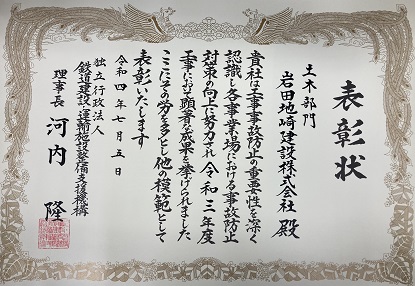 表彰状
土木部門
岩田地崎建設株式会社 殿
貴社は工事事故防止の重要性を深く
認識し各事業場における事故防止
対策の向上に努力され令和三年度
工事において顕著な成果を挙げられました
ここにその労を多とし他の模範として
表彰いたします
令和四年七月五日
独立行政法人
鉄道建設・運輸施設整備支援機構
理事長 河内 隆